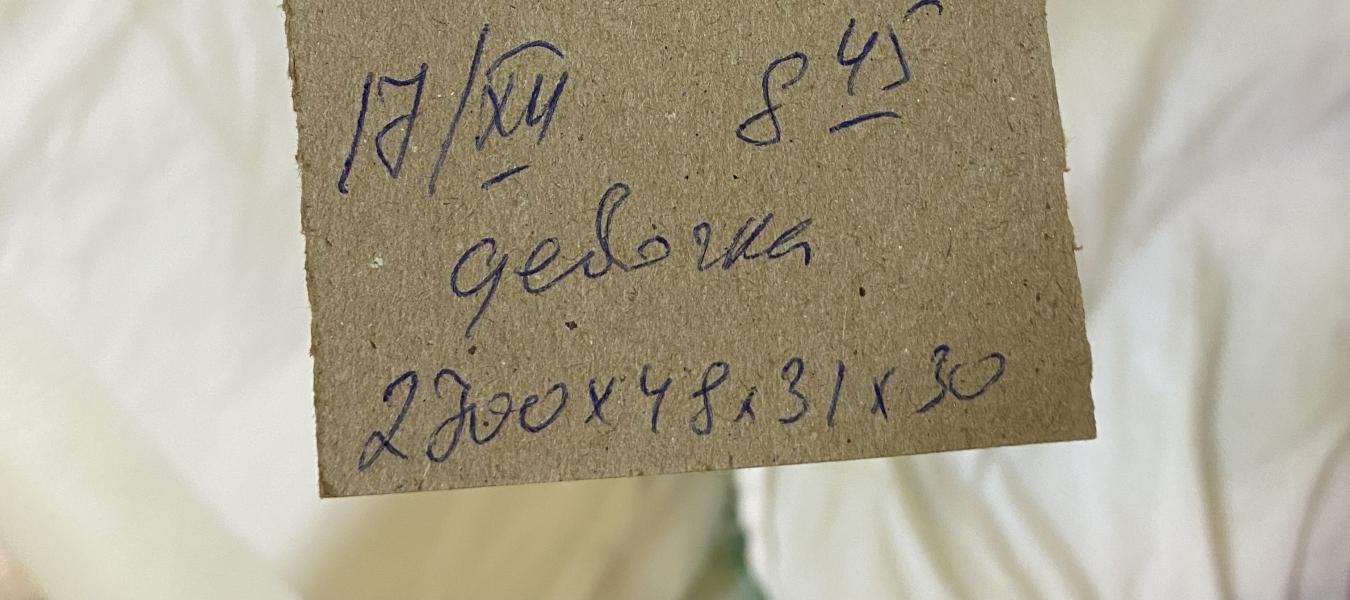 17/XII 8 45
девочка
2700x48x31x30